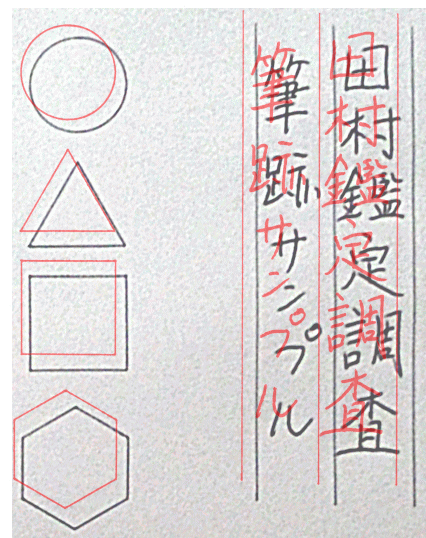 田村鑑定調査
筆跡サンプル